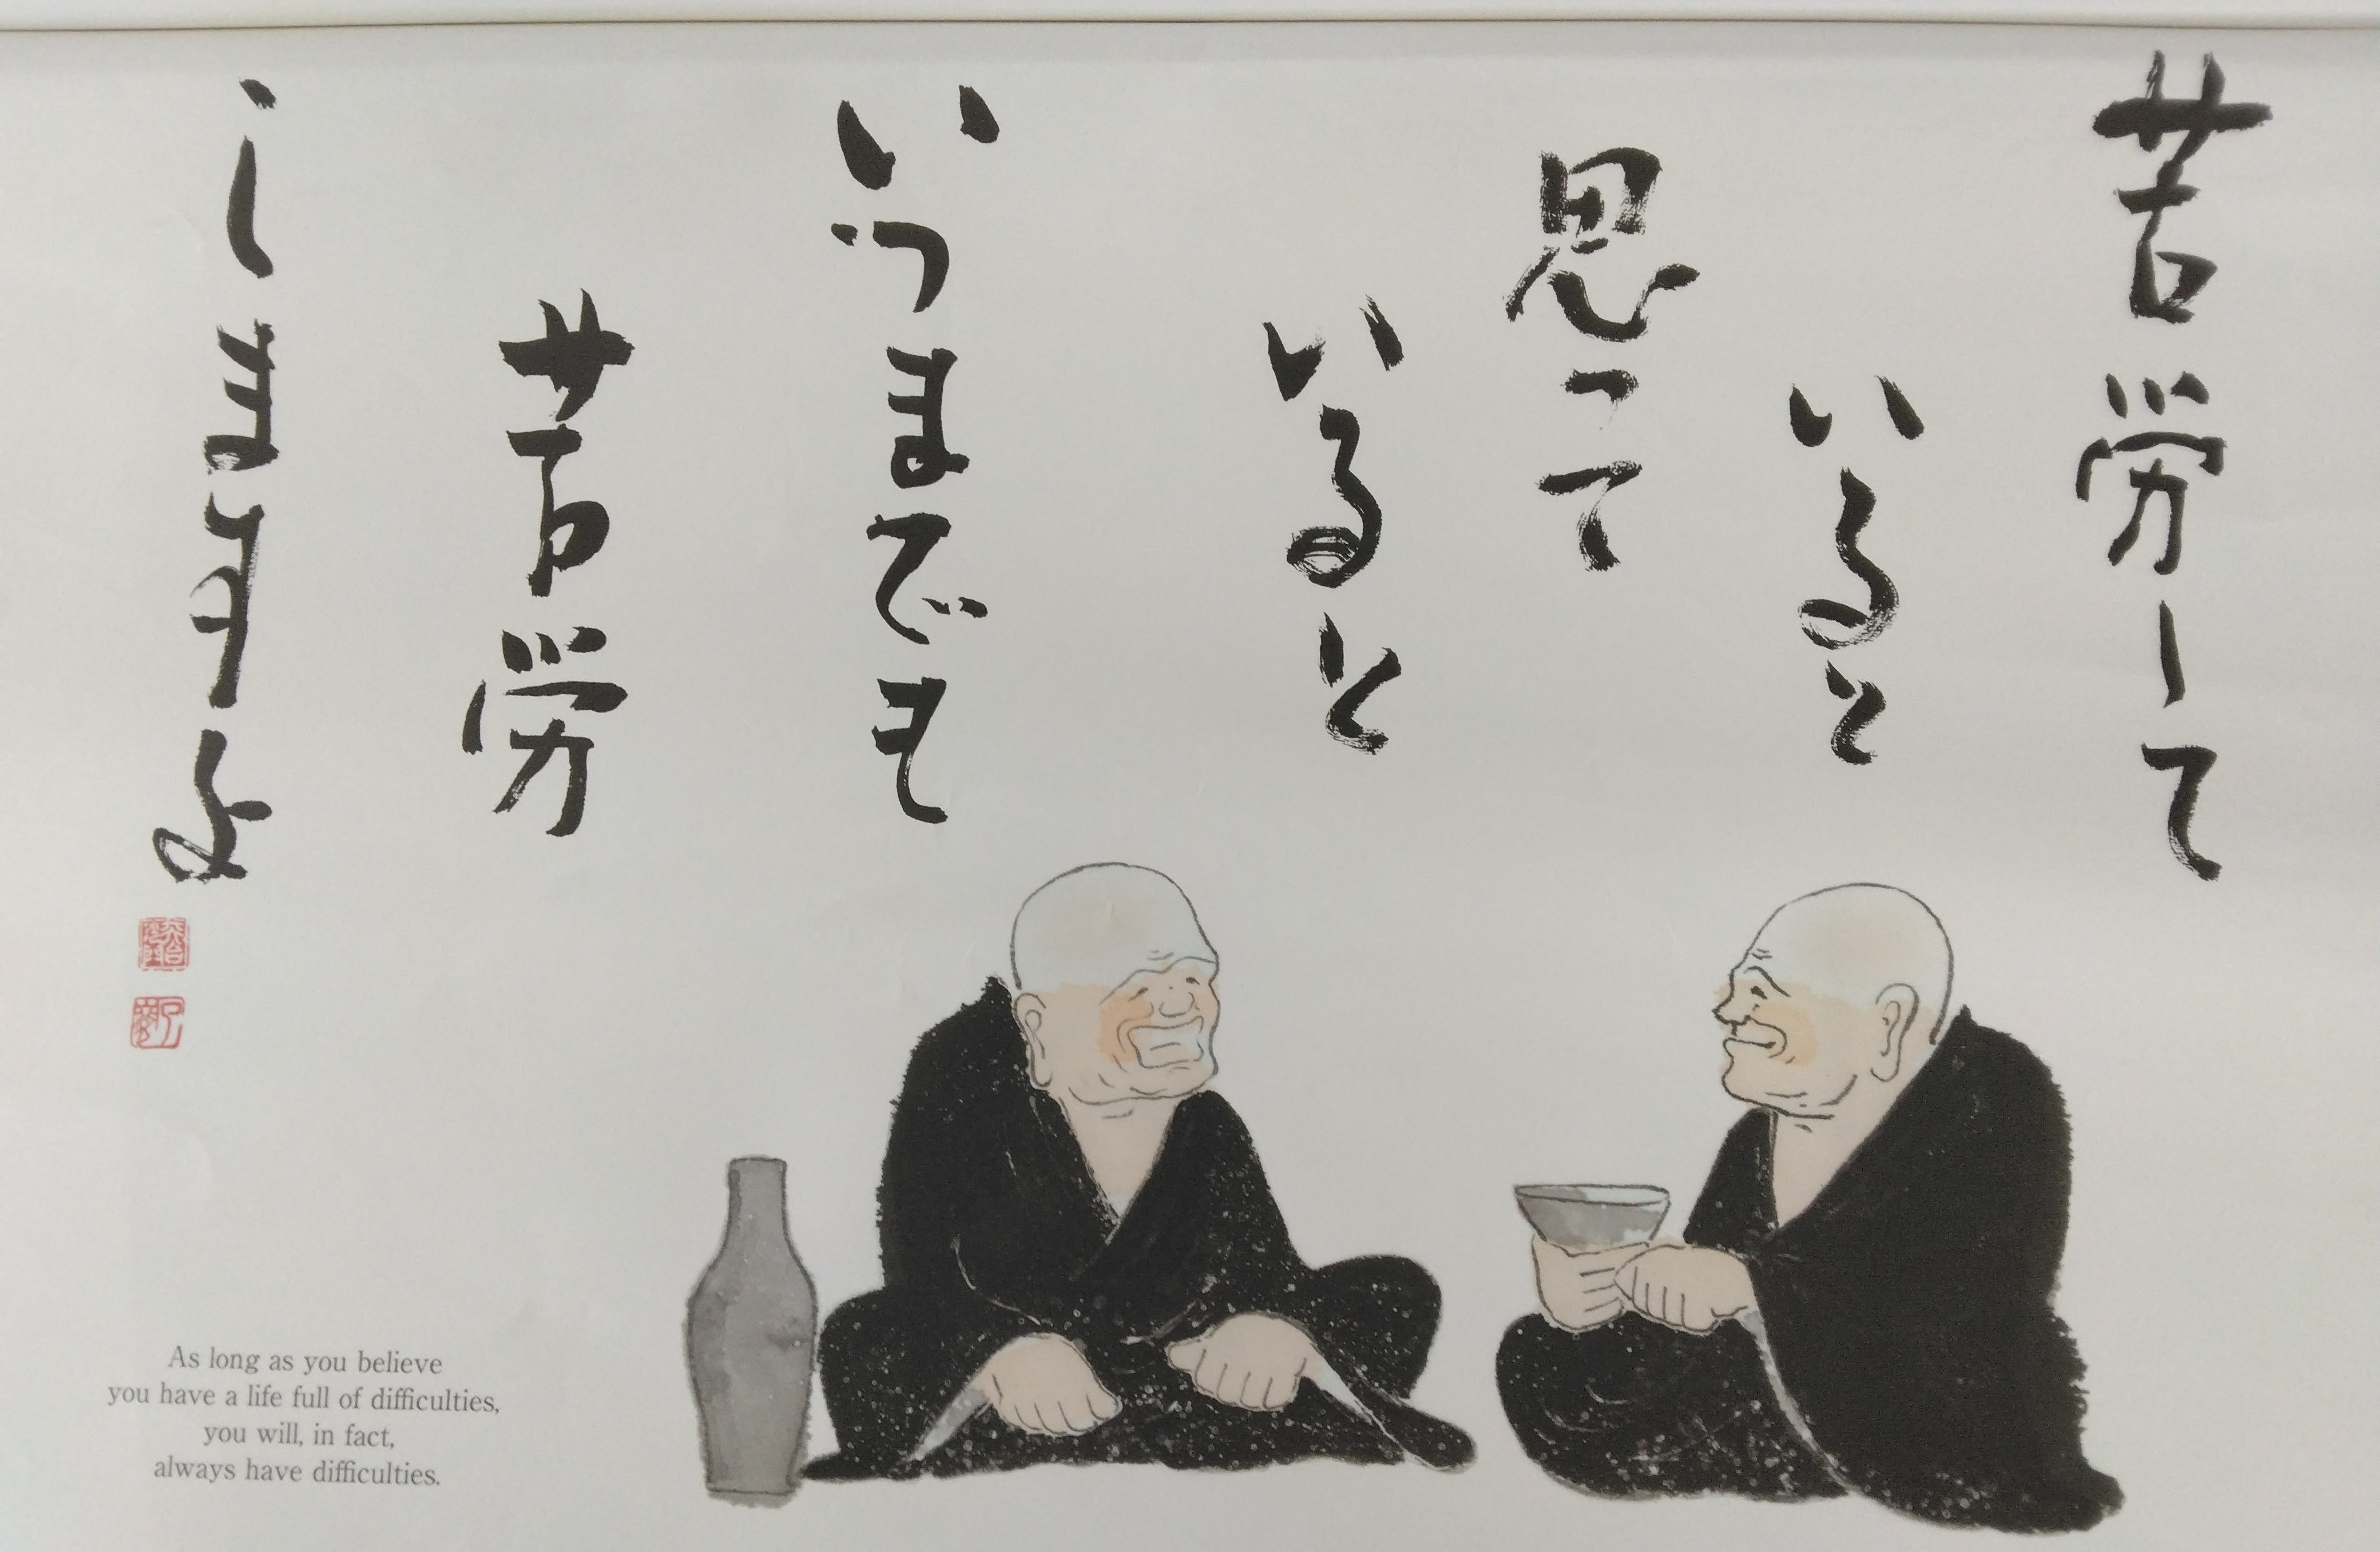 苦労して
いると
思って
いると
いつまでも
苦労
しますよ
As long as you believe
you have a life full of difficulties,
you will, in fact,
always have difficulties.